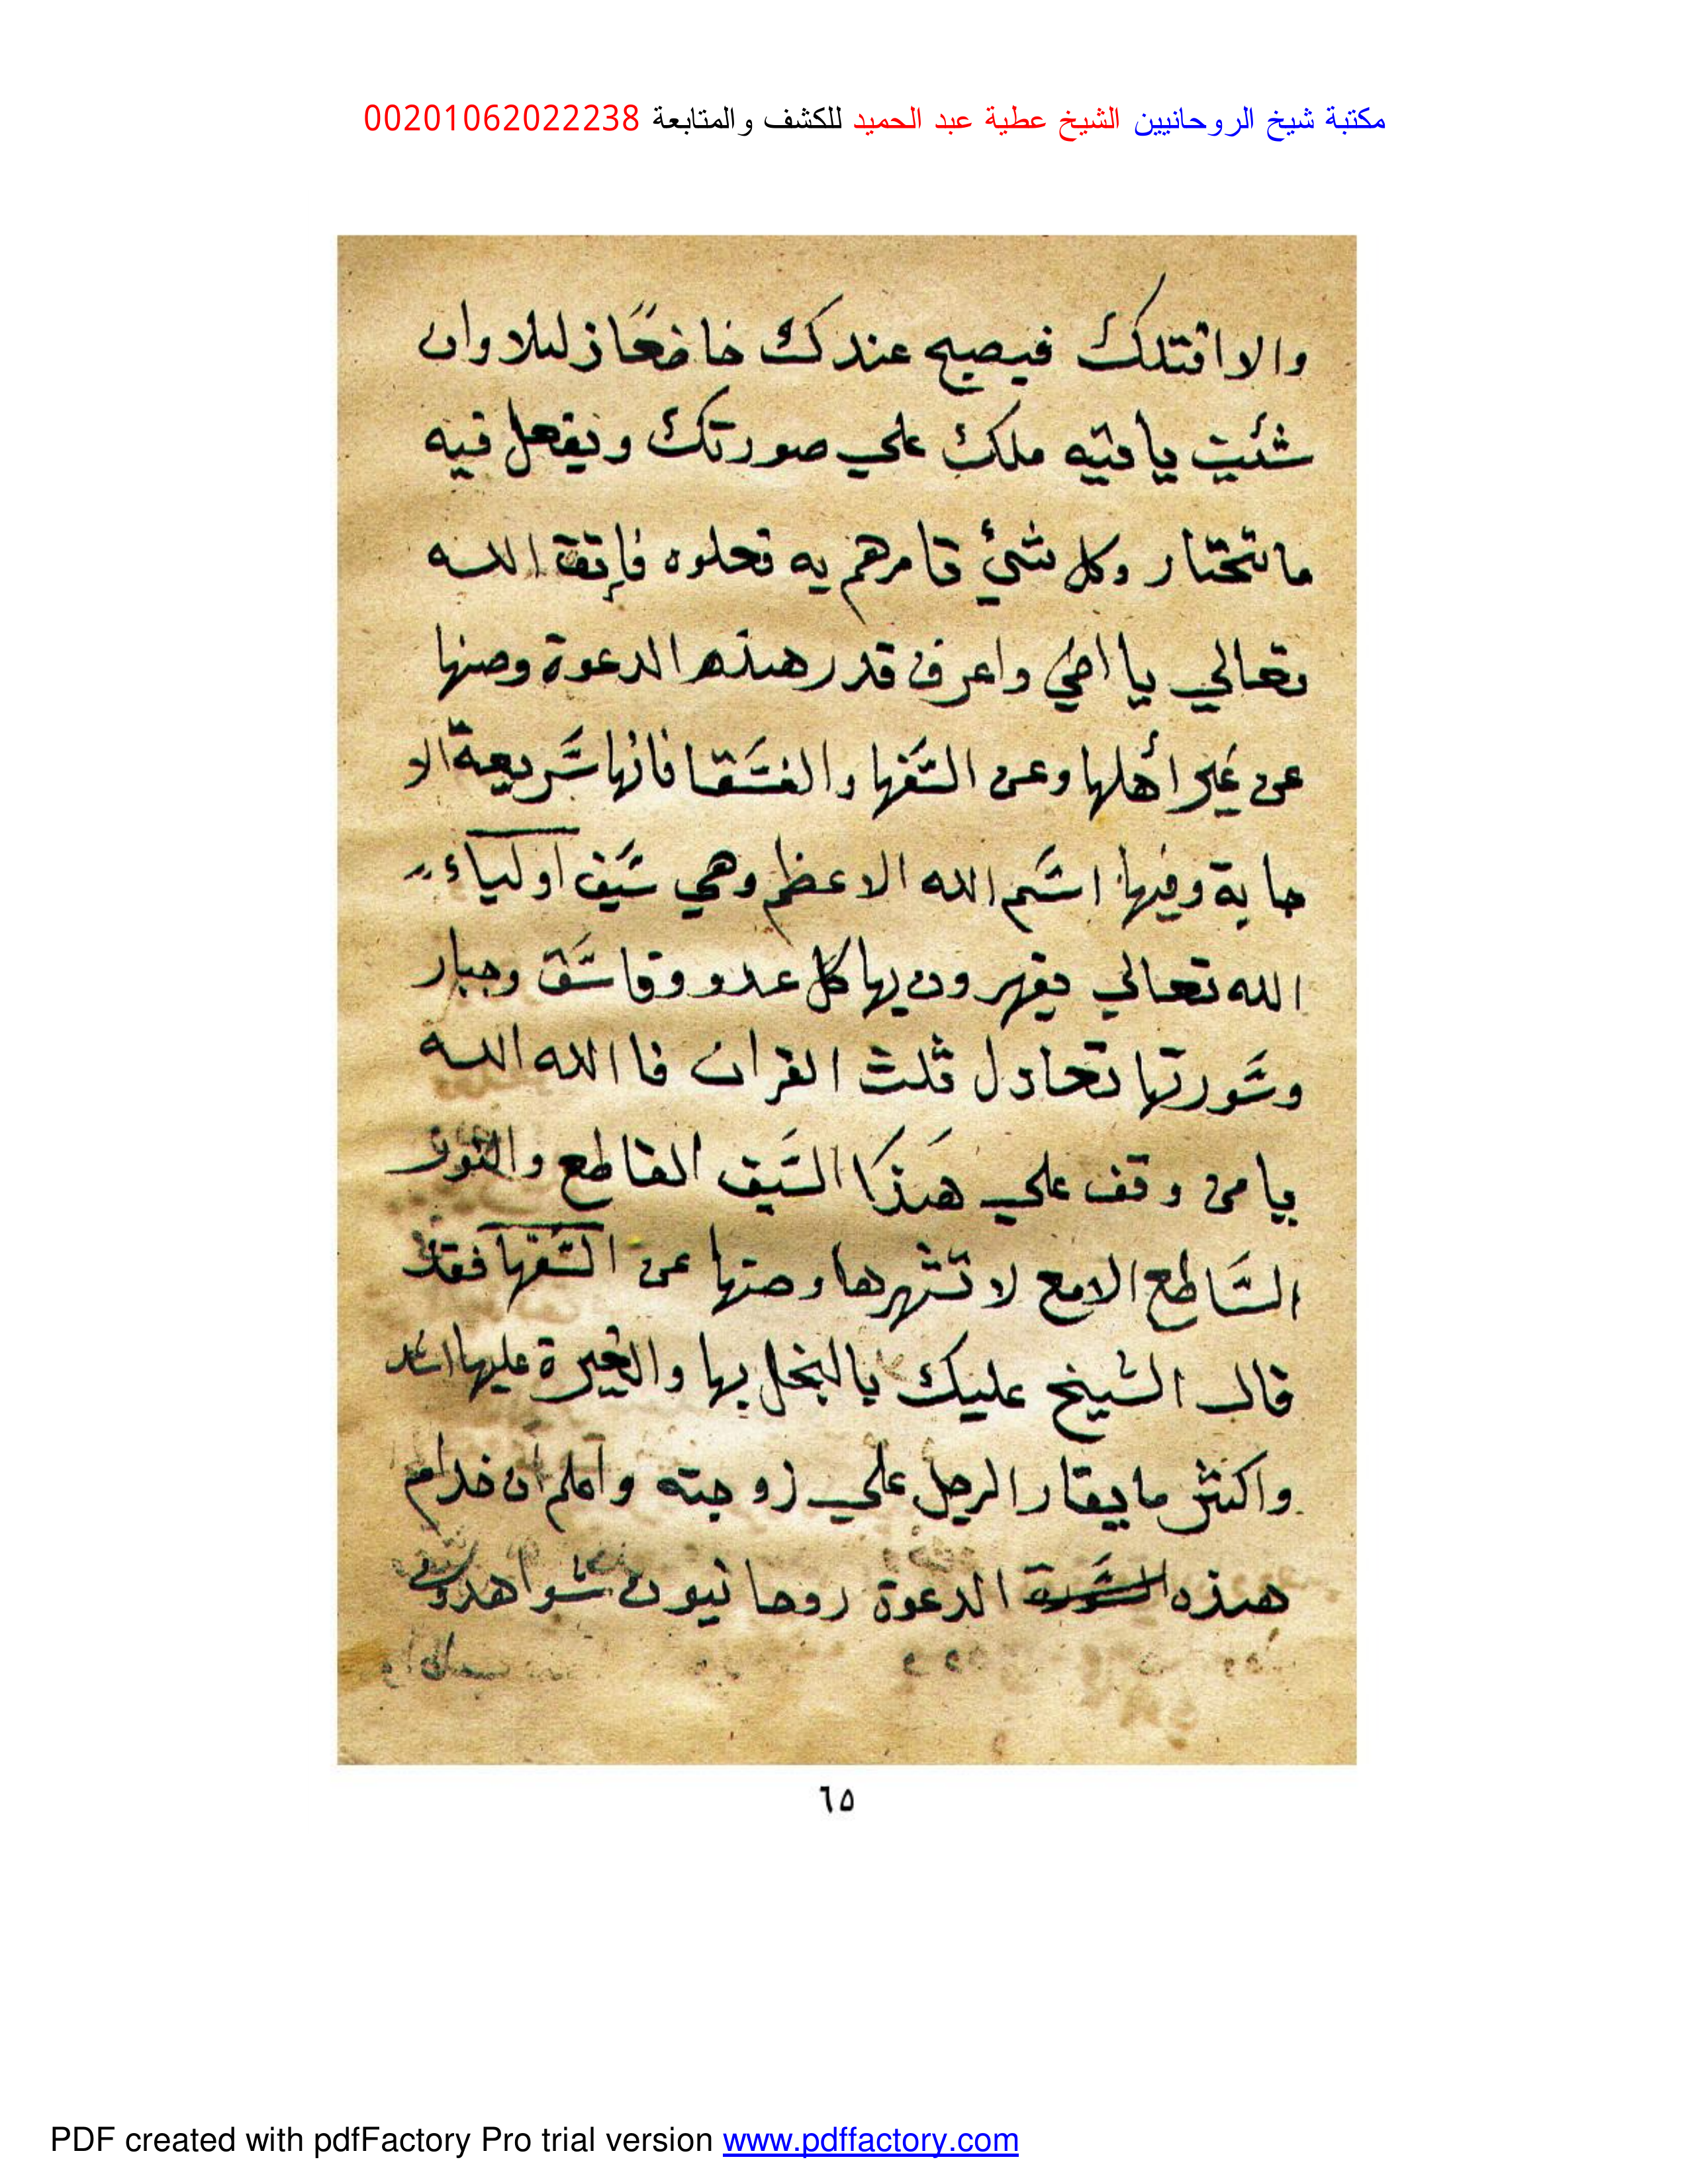 مكتبة شيخ الروحانيين الشيخ عطية عبد الحميد للكشف والمتابعة 00201062022238
والا اقتلك فيصبح عندك خاضعًا زليلا وان
شئت يا فتيه ملك علي صورتك ويفعل فيه
ما تختار وكل شئ تامرهم به تعلوه فإتق الله
تعالي يا اخي واعرف قدر هذه الدعوة وصنها
عن غير أهلها وعن السفها والفسقا فانها سريعة الا
جابة وفيها اسم الله الاعظم وهي سيف اولياء
الله تعالي يقهرون بها كل عدو وفاسق وجبار
وسورتها تعادل ثلث القران فا الله الله
يا من وقف علي هذا السيف القاطع والنور
الساطع الامع لا تشهرها وصنها عن السفها فقد
قال الشيخ عليك بالبخل بها والغيرة عليها اشد
واكثر ما يغار الرجل علي زوجته واعلم ان خدام
هذه الدعوة روحانيون
٦٥
PDF created with pdfFactory Pro trial version www.pdffactory.com